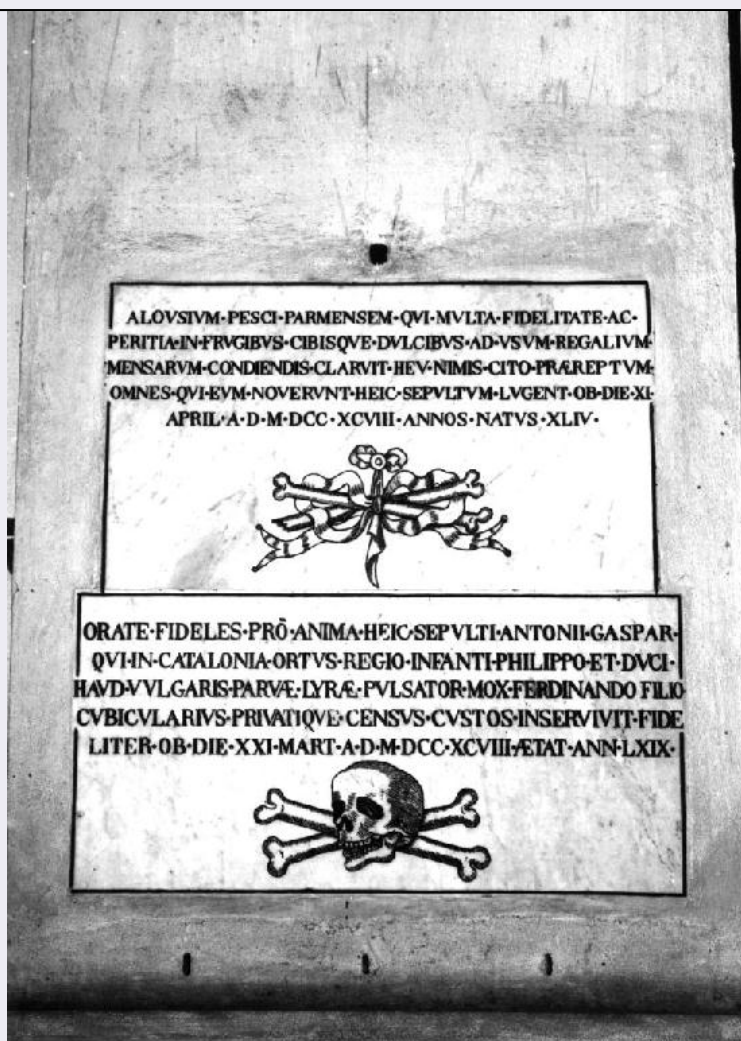 ALOVSIVM·PESCI·PARMENSEM·QVI·MVLTA·FIDELITATE·AC·
PERITIA·IN·FRVGIBVS·CIBISQVE·DVLCIBVS·AD·VSVM·REGALIVM·
MENSARVM·CONDIENDIS·CLARVIT·HEV·NIMIS·CITO·PRÆREPTVM·
OMNES·QVI·EVM·NOVERVNT·HEIC·SEPVLTVM·LVGENT·OB·DIE·XI·
APRIL·A·D·M·DCC·XCVIII·ANNOS·NATVS·XLIV·
ORATE·FIDELES·PRÕ·ANIMA·HEIC·SEPVLTI·ANTONII·GASPAR·
QVI·IN·CATALONIA·ORTVS·REGIO·INFANTI·PHILIPPO·ET·DVCI·
HAVD·VVLGARIS·PARVÆ·LYRÆ·PVLSATOR·MOX·FERDINANDO FILIO
CVBICVLARIVS·PRIVATIQVE·CENSVS·CVSTOS·INSERVIVIT·FIDE
LITER·OB·DIE·XXI·MART·A·D·M·DCC·XCVIII·ÆTAT·ANN·LXIX·